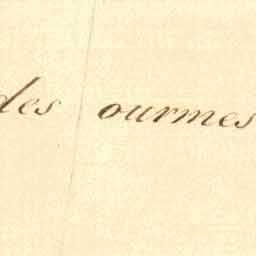 des ourmes